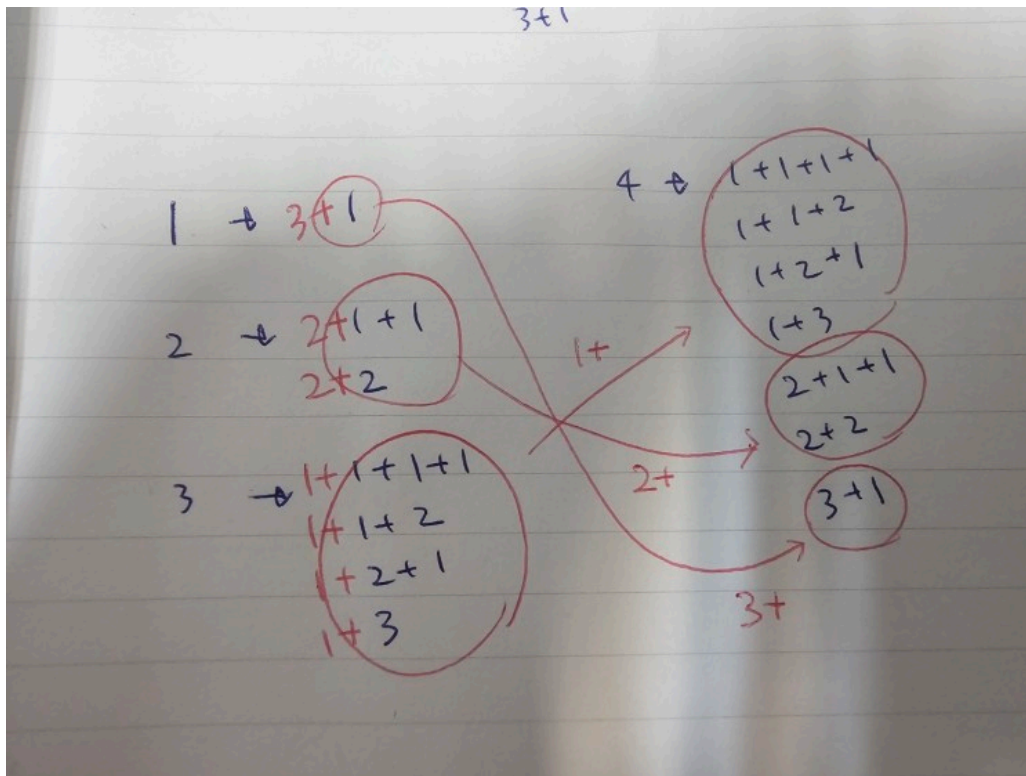 3+1
1 → 3+1
2 → 2+1+1
2+2
3 → 1+1+1+1
1+1+2
1+2+1
1+3
1+
2+
3+
4 → 1+1+1+1
1+1+2
1+2+1
1+3
2+1+1
2+2
3+1